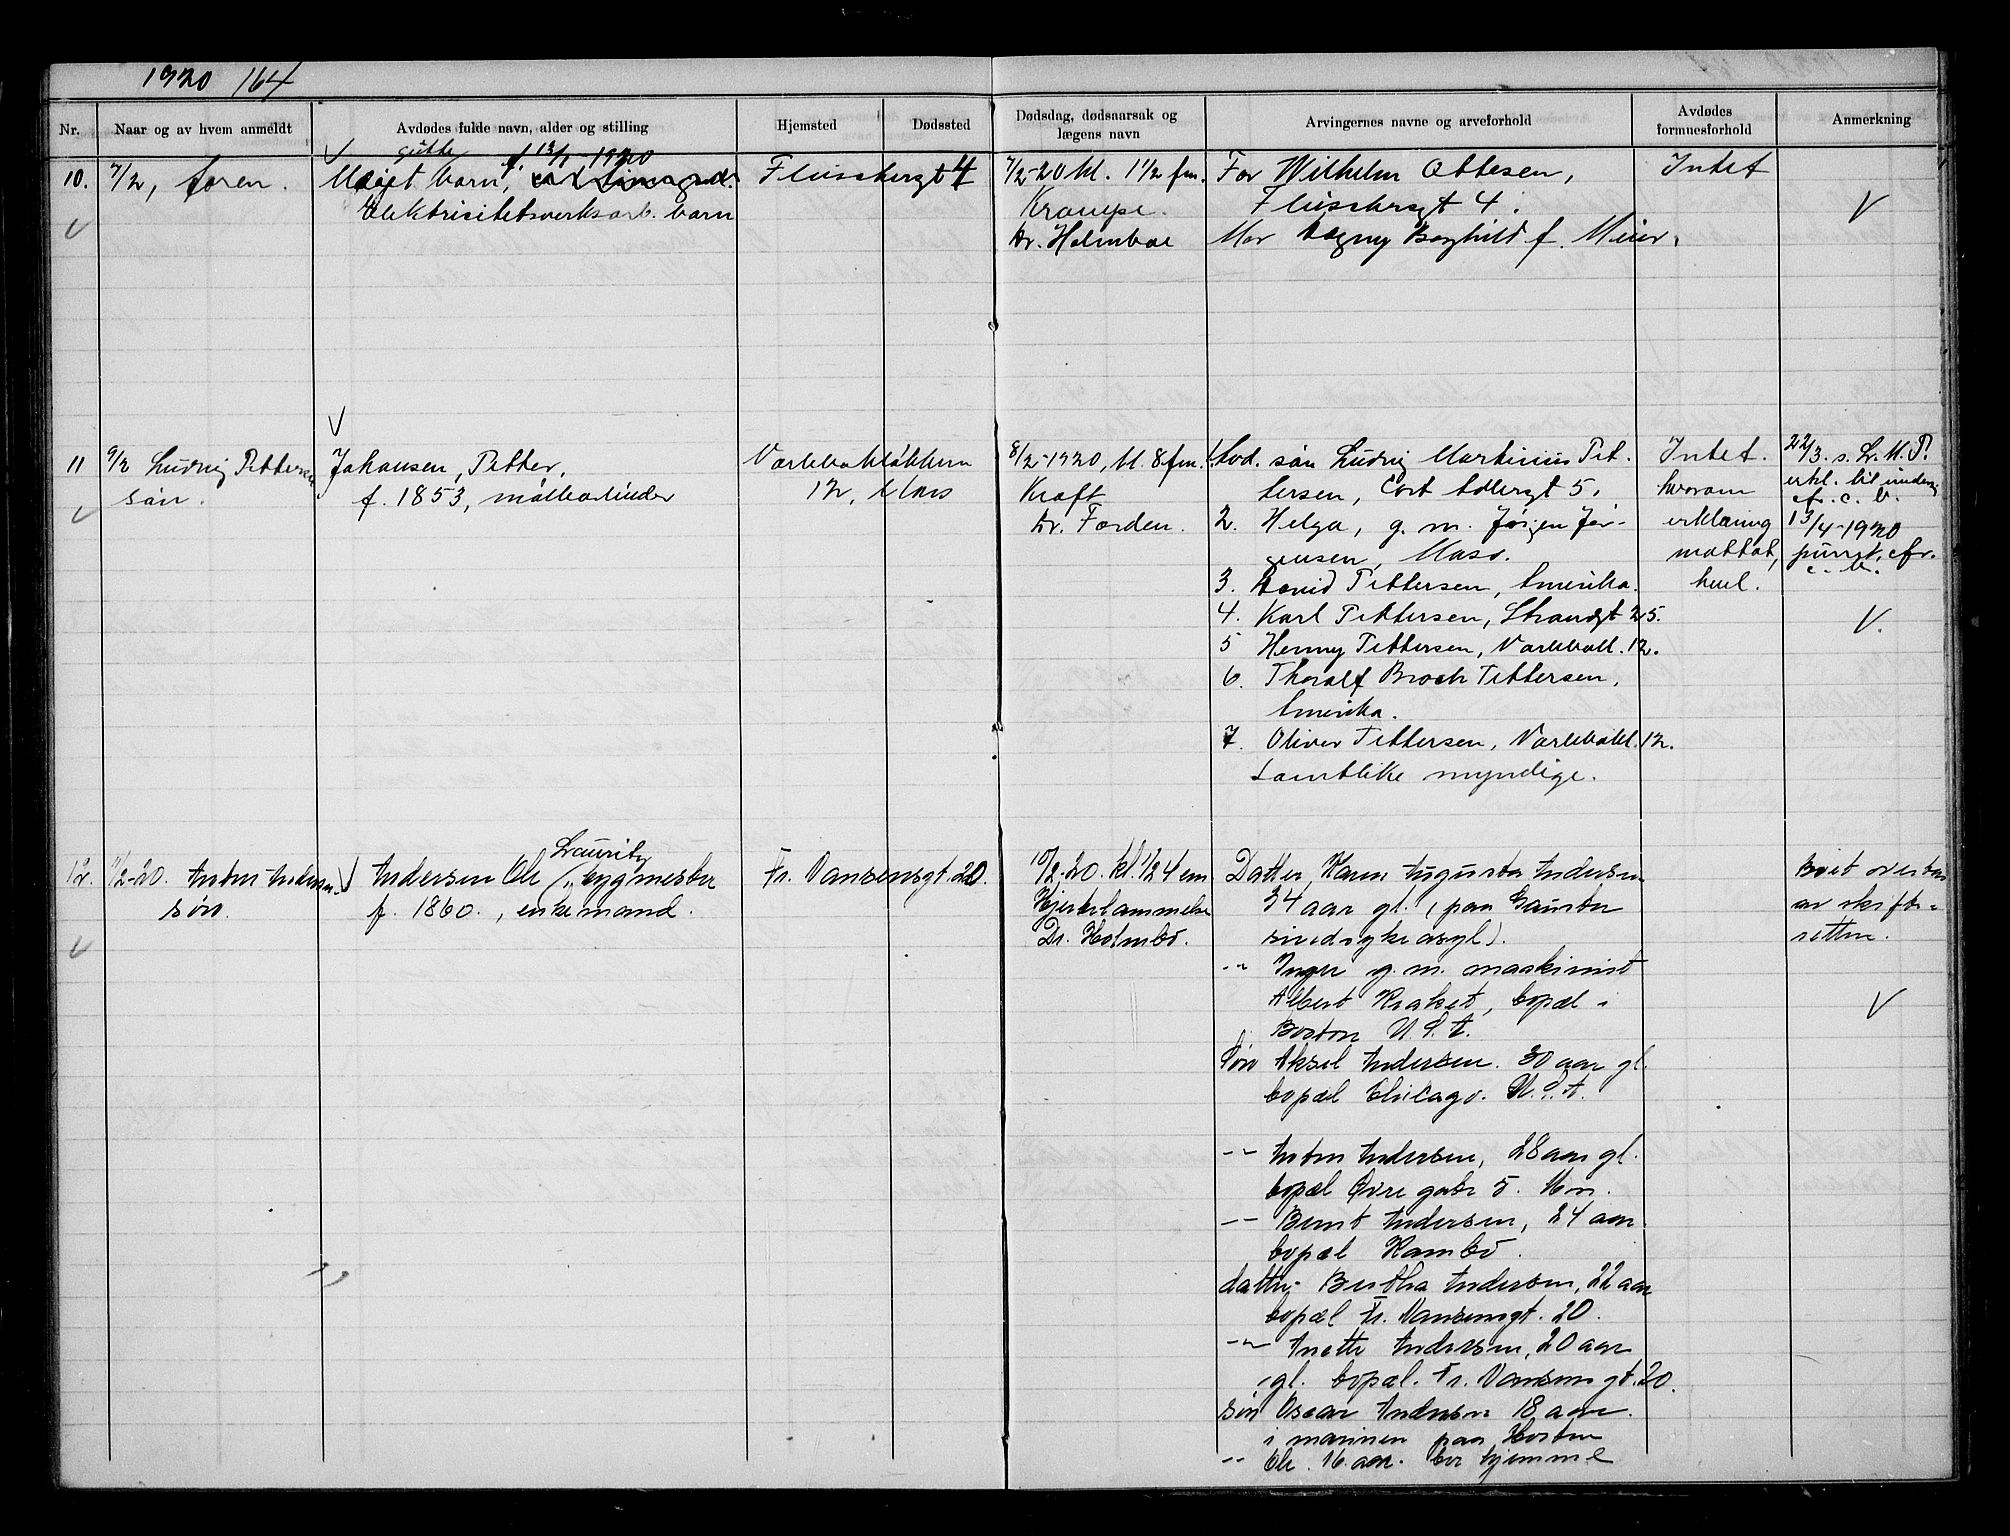 1920 164
Nr.
Naar og av hvem anmeldt
Avdødes fulde navn, alder og stilling
Hjemsted
Dødssted
Dødsdag, dødsaarsak og
lægens navn
Arvingernes navne og arveforhold
Avdødes
formuesforhold
Anmerkning
10. 7/2, faren.
gutt
Udøpt barn, f. 13/1-1920
Elektricitetsverksarb. barn
4
7/2-20 kl. 1 1/2 fm.
Krampe.
Dr. Holmboe
Far Wilhelm Ottesen,
4.
Mor Dagny Borghild f. Meier.
Intet
V
11 9/2 Ludvig Pettersen
søn.
Johansen, Petter,
f. 1853, møllearbeider
Varlebakløkken
12, Moss
8/2-1920, kl. 8 fm.
Kræft
Dr. Forden.
1. søn Ludvig Martinius Pet-
tersen, Cort Adlersgt 5.
2. Helga, g. m. Jørgen Jør-
gensen, Moss.
3. David Pettersen, Amerika.
4. Karl Pettersen, Strandgt 25.
5 Henny Pettersen, Varlebakl. 12.
6. Thoralf Broch Pettersen,
Amerika.
7. Oliver Pettersen, Varlebakl. 12.
Samtlike myndige.
Intet.
hvorom
erklæring
mottat,
22/3. s. L. M. P.
erkl. til
cfr. c. b.
13/4-1920
cfr.
c. b.
V.
12. 11/2-20. Anton Andersen
søn.
Lauritz
Andersen Ole bygmester
f. 1860., enkemand.
Fr. Nansensgt. 20.
10/2-20. kl. 1/2 4 em
Hjertelammelse
Dr. Holmbo.
Datter Karen Augusta Andersen
34 aar gl. (paa Gaustad
sindsykeasyl).
-"- Inger g. m. maskinist
Albert Kraket, bopæl i
Boston U. S. A.
Søn Aksel Andersen. 30 aar gl.
bopæl Chicago. U. S. A.
-"- Anton Andersen, 28 aar gl.
bopæl Øvre gate 5. Moss.
-"- Bernt Andersen, 24 aar
bopæl Kambo.
datter Bertha Andersen, 22 aar
bopæl Fr. Nansensgt. 20.
-"- Anette Andersen, 20 aar
gl. bopæl. Fr. Nansensgt. 20.
søn Oscar Andersen 18 aar.
i marinen paa Horten
-"- Ole. 16 aar. bor hjemme
Boet overtas
av skifte-
retten.
V